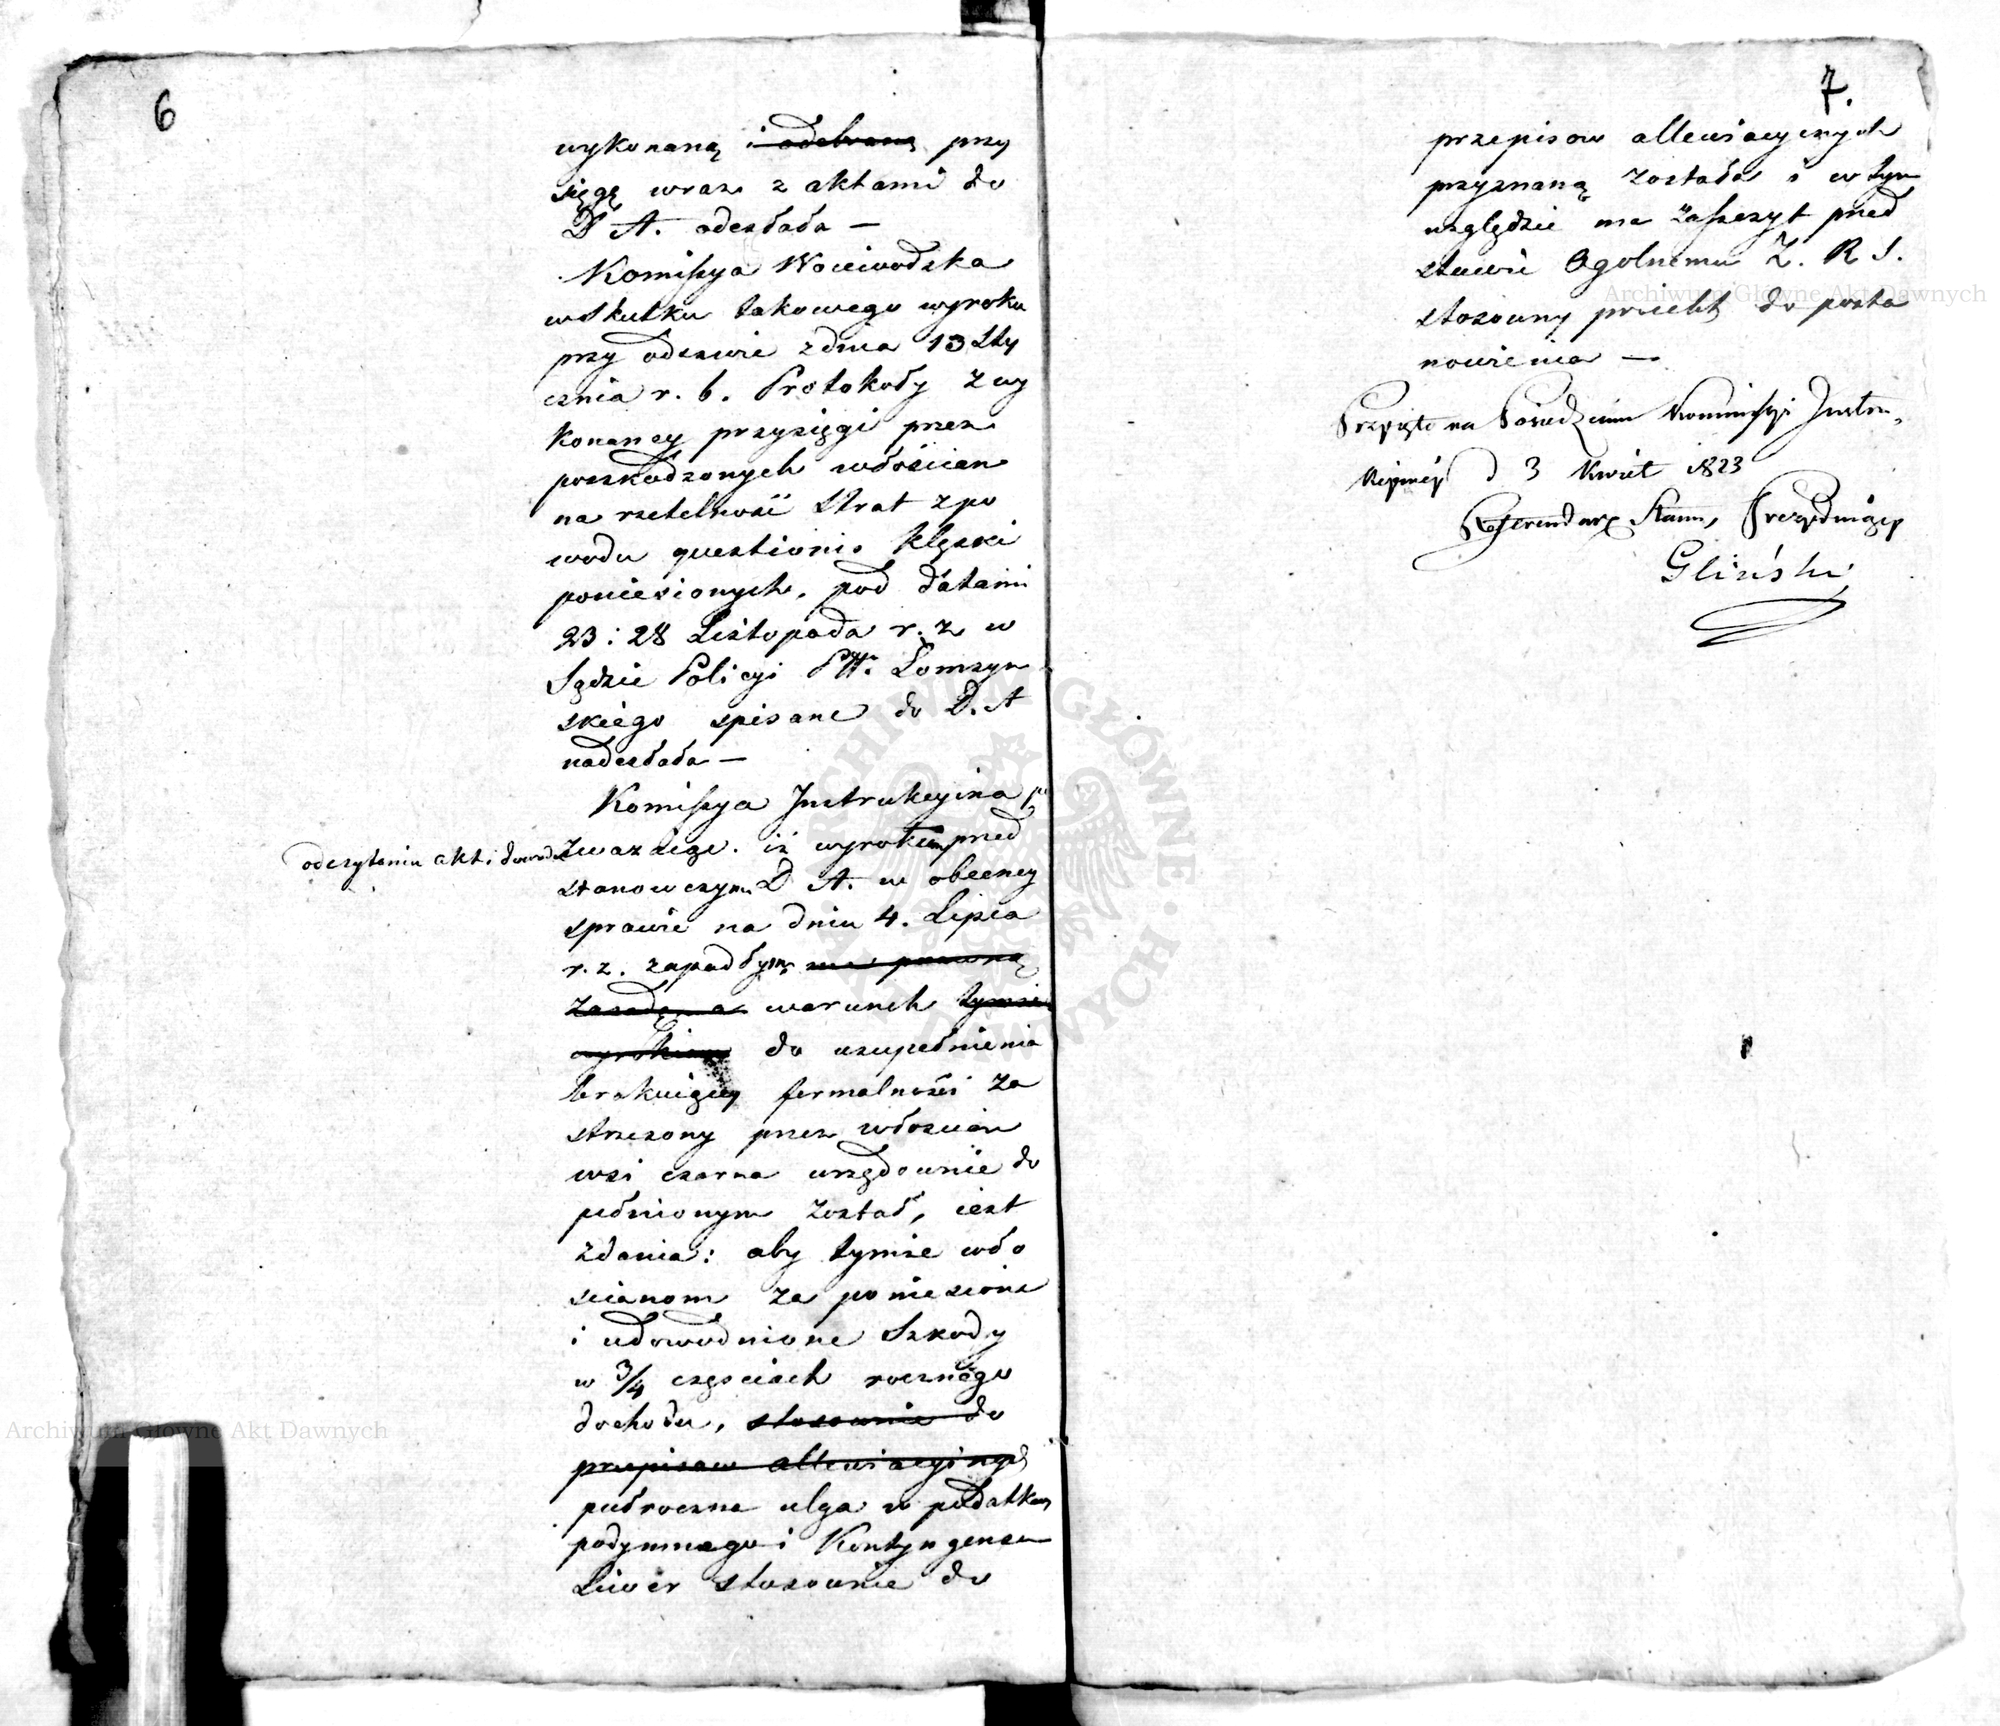 6
wykonaną i odebraną przy
sięgę wraz z aktami do
D A. odesłała —
Komissya Woiewodzka
w skutku takowego wyroku
przy odezwie z dnia 13 Sty
cznia r. b. Protokoły z wy
konaney przysięgi przez
poszkodzonych włościan
na rzetelność strat z po
wodu questionis klęski
poniesionych, pod datami
23 : 28 Listopada r. z. w
Sądzie Policyi Pttu Łomzyn
skiego spisane do D. A
nadesłała —
Komissya Instrukcyina po
odczytaniu akt i dowodów
zwazaiąc. iż wyrokiem przed
stanowczym D A. w obecney
sprawie na dniu 4. Lipca
r. z. zapadłym na pewną
zasadę a warunek tymże
wyrokiem do uzupełnienia
brakuiącey formalności za
strzezony przez włoscian
wsi czarna urzędownie do
pełnionym został, iest
zdania: aby tymże wło
scianom za poniesione
i udowodnione szkody
w 3/4 częsciach rocznego
dochodu, stosownie do
przepisow allewiacyinych
pułroczna ulga w podatkun
podymnego i Kontyngensu
Liwer stosownie do
7.
przepisow allewiacyinych
przyznaną została i w tym
względzie ma zaszczyt przed
stawić Ogolnemu Z. R S.
stosowny proiekt do posta
nowienia —
Przyięto na Posiedzeniu Kommissyi Instru-
kcyiney d 3 Kwiet 1823
Referendarz Stanu, Prezyduiący
Gliński
Archiwum Główne Akt Dawnych
Archiwum Główne Akt Dawnych
ARCHIWUM GŁÓWNE AKT DAWNYCH